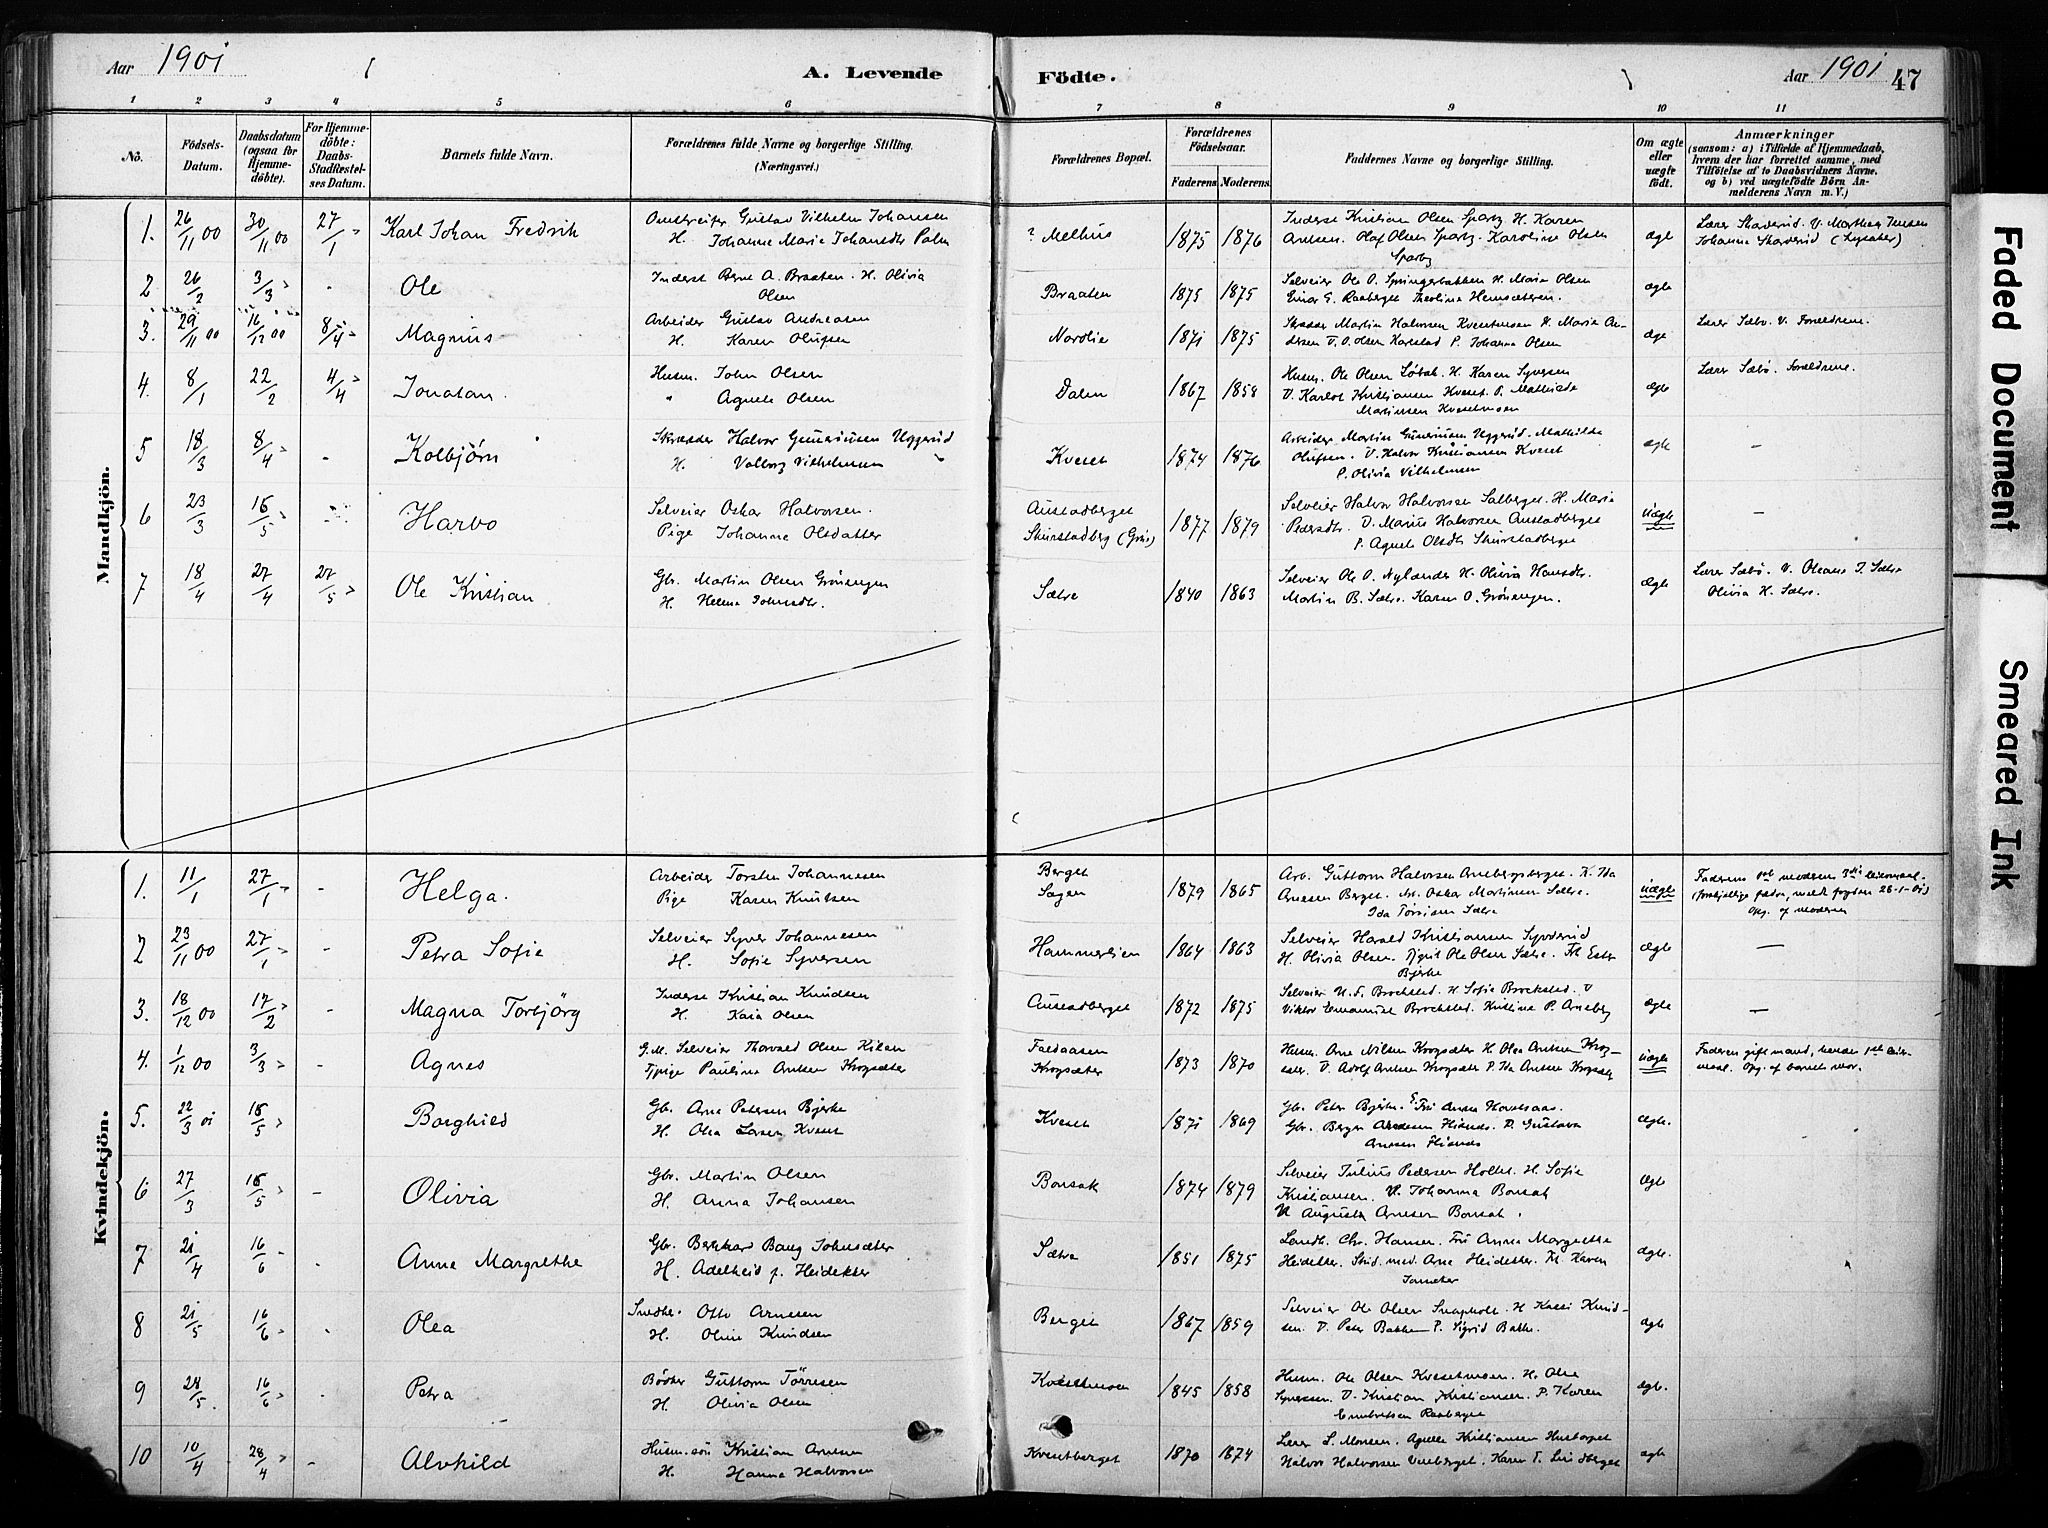 Aar 1901
A. Levende
Födte.
Aar 1901
47
1 2 3 4 5 6 7 8 9 10 11
No.
Födsels-Datum.
Daabsdatum (ogsaa for Hjemme-döbte).
For Hjemme-döbte: Daabs-Stadfæstel-ses Datum.
Barnets fulde Navn.
Forældrenes fulde Navne og borgerlige Stilling. (Næringsvei.)
Forældrenes Bopæl.
Forældrenes Födselsaar.
Faderens Moderens
Faddernes Navne og borgerlige Stilling.
Om ægte eller uægte födt.
Anmærkninger
(saasom: a) i Tilfælde af Hjemmedaab, hvem der har forrettet samme, med Tilföielse af to Daabsvidners Navne. og b) ved uægtefödte Börn An-melderens Navn m. V.)
Mandkjön.
1. 26/11 00 30/11 00 27/1 Karl Johan Fredrik
Gustav Vilhelm Johansen
H. Johanne Marie Johansdtr Palm
? Melhus 1875 1876
Inderst Kristian Olsen Sparby H. Karen
Olaf Olsen Sparby. Karoline Olsen
Sparby
ægte
2 26/2 3/3 - Ole
Inderst Bernt A. Braaten. H. Olivia
Olsen
Braaten 1875 1875
Selveier Ole O. Springerbakken H. Maria Olsen
ægte
3. 29/11 00 16/12 00 8/4 Magnus
Arbeider Gustav Andreasen
H. Karen Olufsen
Nordlie 1871 1875
Martin Halvorsen Kvesetmoen H. Maria An-
dersen V. O. Olsen Karlstad P. Johanna Olsen
Lærer Sæbö. V. Forældrene.
4. 8/1 22/2 4/4 Jonatan.
Husm. John Olsen
" Agnete Olsen
Dalen 1867 1858
Husm. Ole Olsen H. Karen Syversen
V. Karlot Kristiansen Kveset. P. Mathilde
Martinsen Kvesetmoen
ægte
Lærer Sæbö. Forældrene.
5 18/3 8/4 - Kolbjörn
Skrædder Halvor Gunerius­en Uggerud
H. Valborg Vilhelmsen
Kveset 1874 1876
Arbeider Martin Gunerius­en Uggerud. Mathilde
Olufsen. V. Halvor Kristiansen Kveset
P. Olivia Vilhelmsen
ægte
-
6 23/3 16/5 Harvo
Selveier Oskar Halvorsen.
Pige Johanne Olsdatter
Austadberget
Skurstadberg (Grue)
1877 1879
Selveier Halvor Halvorsen Salberget. H. Maria
Pedersdtr. V. Marius Halvorsen Austadberget
P. Agnete Olsdtr Skurstadberget
uægte
-
7 18/4 27/4 27/5 Ole Kristian
Gbr. Martin Olsen Grönengen
H. Helene Johnsdtr.
Sætre 1840 1863
Selveier Ole O. Nylander H. Olivia Hansdtr.
Martin B. Sætre. Karen O. Grönengen.
ægte
Lærer Sæbö. V. Oleane J. Sætre
Olivia H. Sætre.
Kvindekjön.
1. 11/1 27/1 - Helga.
Arbeider Torsten Johannesen
Pige Karen Knutsen
Berget
Sagen
1879 1865
Arb. Guttorm Halvorsen Arnebergsberget. H. Ida
Arnesen Berget. M. Oskar Martinsen Sætre.
Ida Törrisen Sætre
uægte
Faderens 1ste moderens 3die leiermaal.
Opg. af moderen
2 23/11 00 27/1 - Petra Sofie
Selveier Syver Johannesen
H. Sofie Syversen
Hammerlien 1864 1863
Selveier Harald Kristiansen Syverud
H. Olivia Olsen. Ole Olsen Sætre. Frk Ester
Bjerke
ægte
-
3. 18/12 00 17/2 - Magna Torbjörg
Inderst Kristian Knudsen
H. Kaia Olsen
Austadberget 1872 1875
Selveier N. F. Brocksted. H Sofie Brocksted. V
Viktor Emanuel Brocksted. Kristine P. Arneberg
ægte
-
4. 1/12 00 3/3 - Agnes
G.M. Selveier Thorvald Olsen Kilen
Tjpige Pauline Antsen Krogsæter
Faldaasen
Krogsæter
1873 1870
Husm. Arne Nilsen Krogsæter H. Olea Antsen Krog-
sæter. V. Adolf Antsen Krogsæter P. Ida Antsen Krogsætr
uægte
Faderen gift mand, hendes 1ste leier-
maal. Opg. af barnets mor.
5. 22/3 01 16/5 Borghild
Gbr. Arne Petersen Bjerke
H. Olea Larsen Kveset
Kveset 1871 1869
Gbr. Peter Bjerke. Fru Anna
Gbr. Berger P. Gustava
ægte.
6 27/3 16/5 - Olivia
Gbr. Martin Olsen
H. Anna Johansen
Bonsak 1874 1879
Selveier Julius Pedersen Holter. H. Sofie
Kristiansen. V. Johanna Bonsak
V. Augusta Arnesen Bonsak.
ægte
7 21/4 16/6 Anne Margrethe
Gbr. Bernhard Baug Johnsæter
H. Adelheid f. Heidekker
Sætre 1851 1875
Landh. Chr. Hansen. Fru Anna Margrethe
Heidekker. Stud. med. Arne Heidekker. Fr. Karen
ægte.
8 21/5 16/6 Olea
Snedker. Otto Arnesen
H. Oline Knudsen
Berget 1867 1859
Selveier Ole Olsen Snapholt. H Kassi Knud-
sen. V. Peter Bakke P. Sigrid Bakke.
ægte
9 28/5 16/6 Petra
Bödker Guttorm Törresen
H. Olivia Olsen
Kvesetmoen 1845 1858
Husm. Ole Olsen Kvesetmoen. H. Oline
Syversen. V. Kristian Kristiansen. P. Karen
Embretsen Raaberget
ægte.
10 10/4 28/4 - Alvhild
Husm.sön Kristian Arnesen
H. Hanna Halvorsen
Kvesetberget 1870 1874
Lærer S. Monsen. Agnette Kristiansen
Halvor Halvorsen Karen T. Lindberget
ægte
Faded Document
Smeared Ink